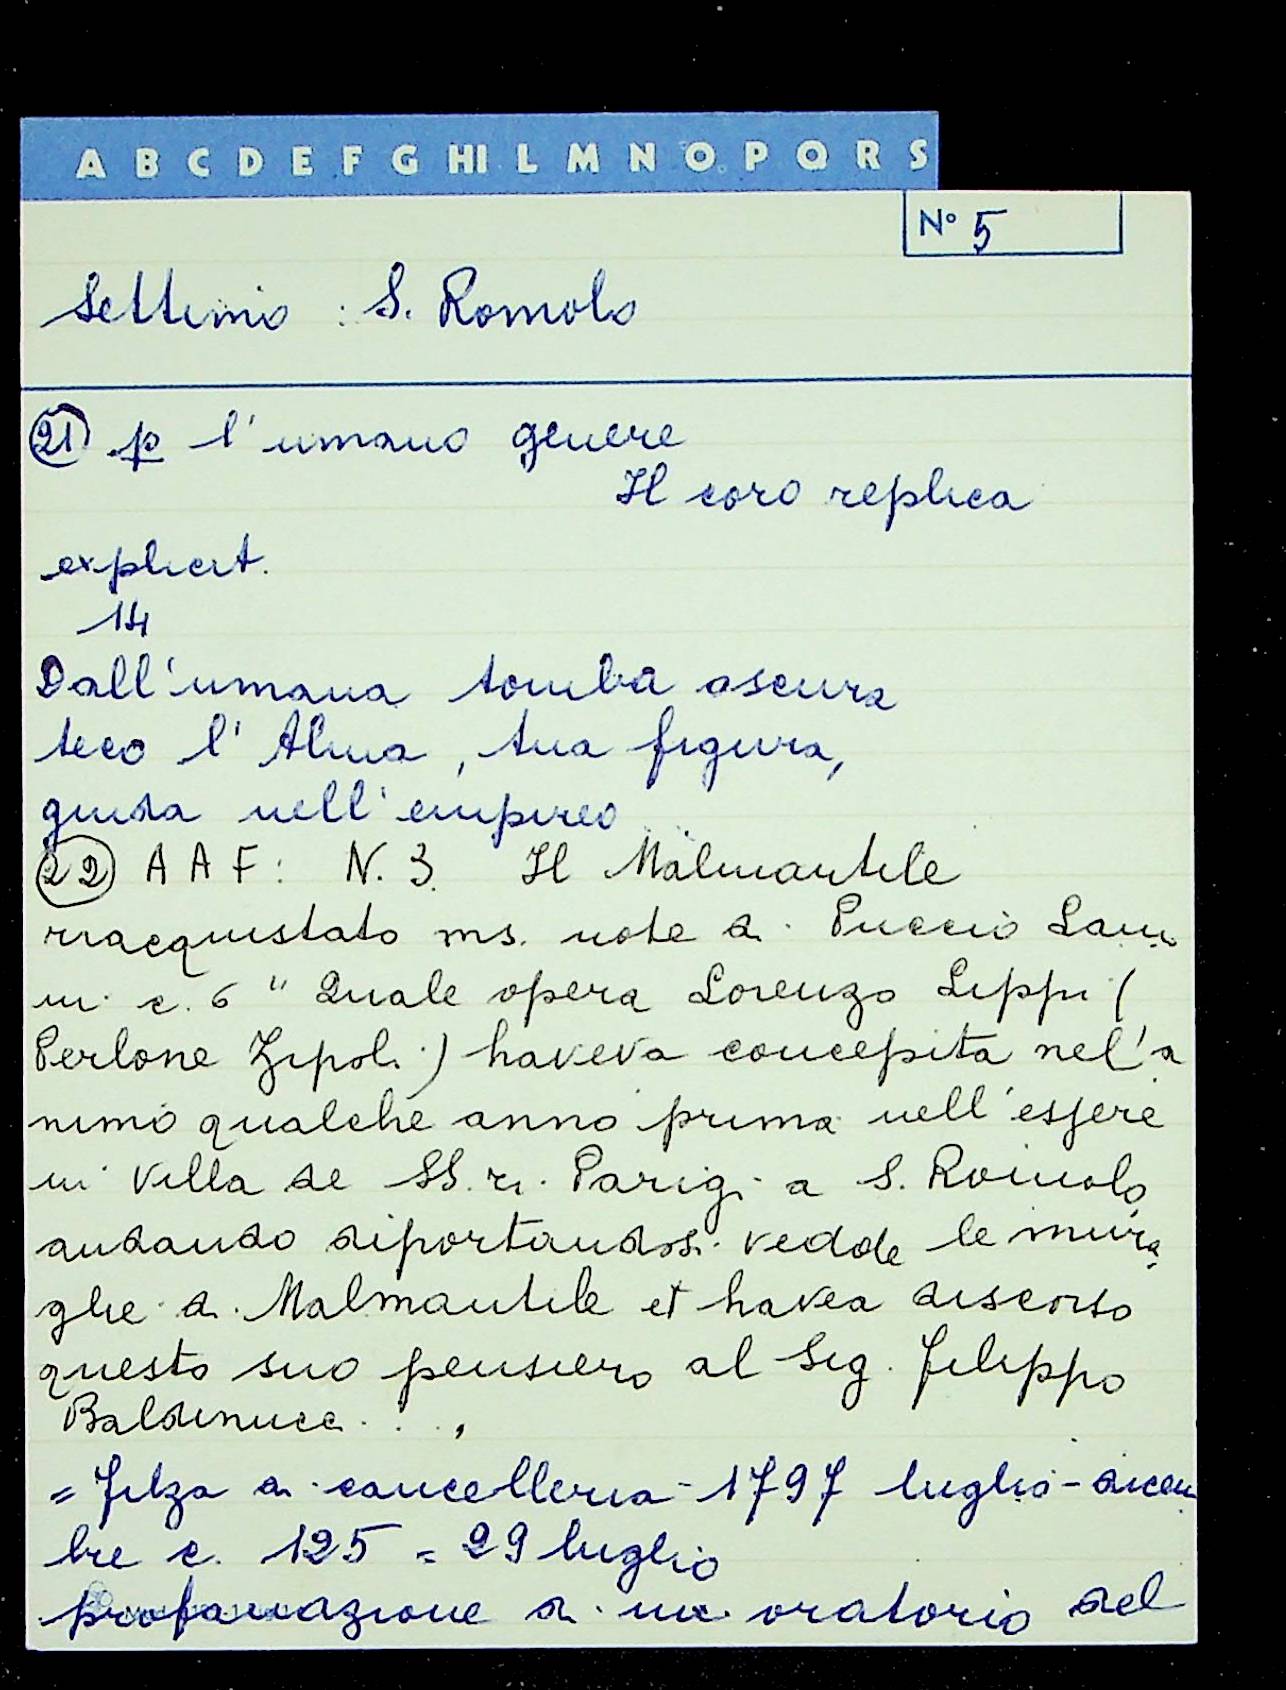 A B C D E F G HI L M N O P Q R S
N° 5
Settimo : S. Romolo
21) p l'umano genere
Il coro replica
explicit.
14
Dall'umana tomba oscura
teco l'Alma, tua figura,
guida nell'empireo
22) A A F : N. 3. Il Malmantile
riacquistato ms. note di Puccio Lam
ni c. 6 " Quale opera Lorenzo Lippi (
Perlone Zipoli) haveva concepita nel'a
nimo qualche anno prima nell'essere
in Villa de SS.ri Parigi a S. Romolo
andando diportandosi vedde le mura
glie di Malmantile et havea discorso
questo suo pensiero al Sig. Filippo
Baldinucci . . ,
= Filza di cancelleria - 1797 luglio - dicem
bre c. 125 = 29 luglio
profanazione di un oratorio del